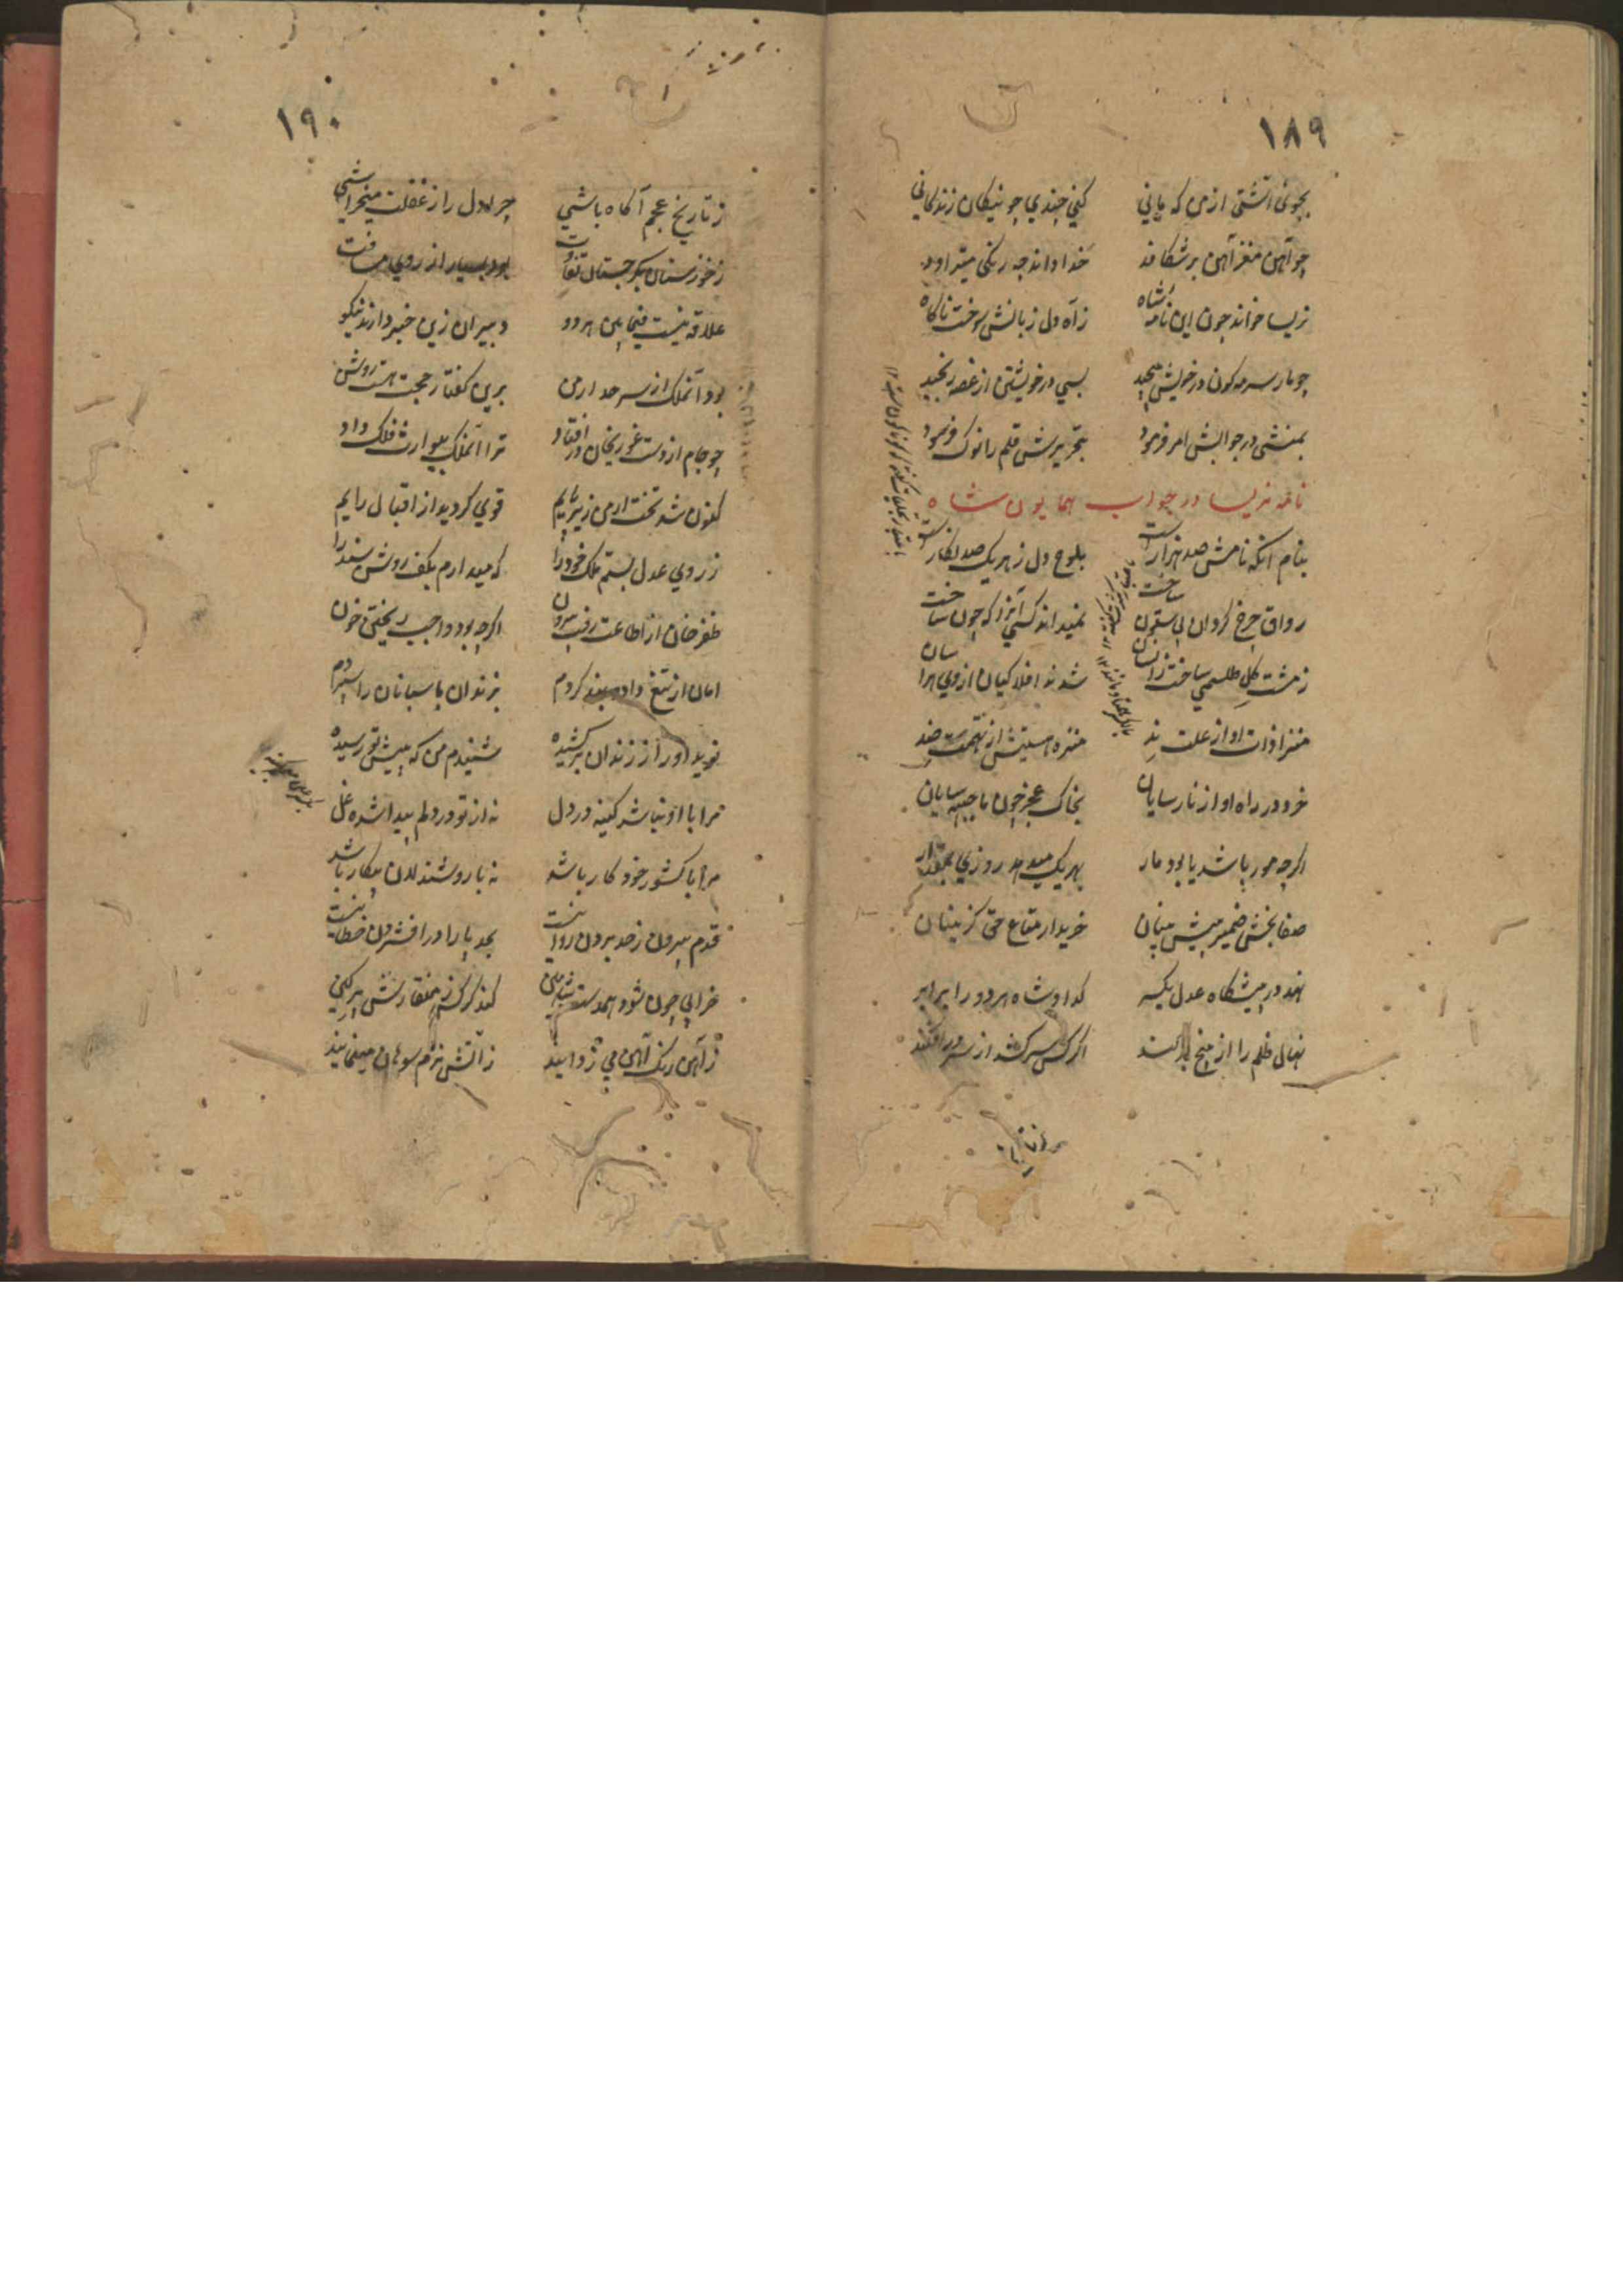 ۱۸۹
بجوئی آشتی از من که یابی کنی چندی چو نیکان زندکانی
چو آهن مغز آهن بر شکافد خدا داند چه رنکی میتراود
تریسا خواند چون این نامهٔ شاه ز آه دل زبانش سوخت ناکاه
چو مار سرمه کون در خویش پیچید بسی در خویشتن از غصه رنجید
بمنشی در جوابش امر فرمود بتحریرش قلم را نوک فرسود
نامه تریسا در جواب همایون شاه
بنام آنکه نامش صد هزار است بلوح دل ز هر یک صد نکار است
رواق چرخ کردان بی ستون ساخت نمیداند کسی آنرا که چون ساخت
ز مشت کل طلسمی ساخت زانسان شدند افلاکیان از وی هراسان
منزا ذات او از علت ند منزه هستیش از تهمت ضد
خرد در راه او از نارسایان بخاک عجز چون ما جبهه سایان
اکرچه مور باشد یا بود مار بهر یک میدهد روزی بمقدار
صفا بخش ضمیر پیش بینان خریدار متاع حق کزینان
نهد در پیشکاه عدل یکسر کدا و شاه هر دو را برابر
نهال ظلم را از بیخ بر کند اکر کس سر کشد از سر در افکند
۱۹۰
ز تاریخ عجم آکاه باشی چرا دل را ز غفلت میخراشی
ز خوزستان بکرجستان تفاوت بود بسیار از روی مسافت
علاقه نیست فیمابین هر دو دبیران زین خبر دارند نیکو
بود آنملک از سرحد ارمن برین کفتار حجت هست روشن
چو جام از دست غوریخان در افتاد ترا آنملک بیوارث فلک داد
کنون شد تخت ارمن زیر پایم قوی کردید از اقبال رایم
ز روی عدل بستم ملک خود را که میدارم بکف روشن سند را
ظفرخان از اطاعت رفت بیرون اکرچه بود واجب ریختن خون
امان از تیغ داده بند کردم بزندان پاسبانان را سپردم
نوید او را ز زندان بر کشیده شنیدم من که پیش تو رسیده
مرا با او نباشد کینه در دل نه از تو در دلم پیدا شده غل
مرا با کشور خود کار باشد نه با روشندلان پیکار باشد
قدم بیرون ز حد بردن روا نیست بحد پا را در افشردن خطا نیست
خرابی چون شود همدست شاهین کند کرکس ز منقارش پر کین
ز آهن رنک آهن می زداید ز آتش نرم سوهان مینماید